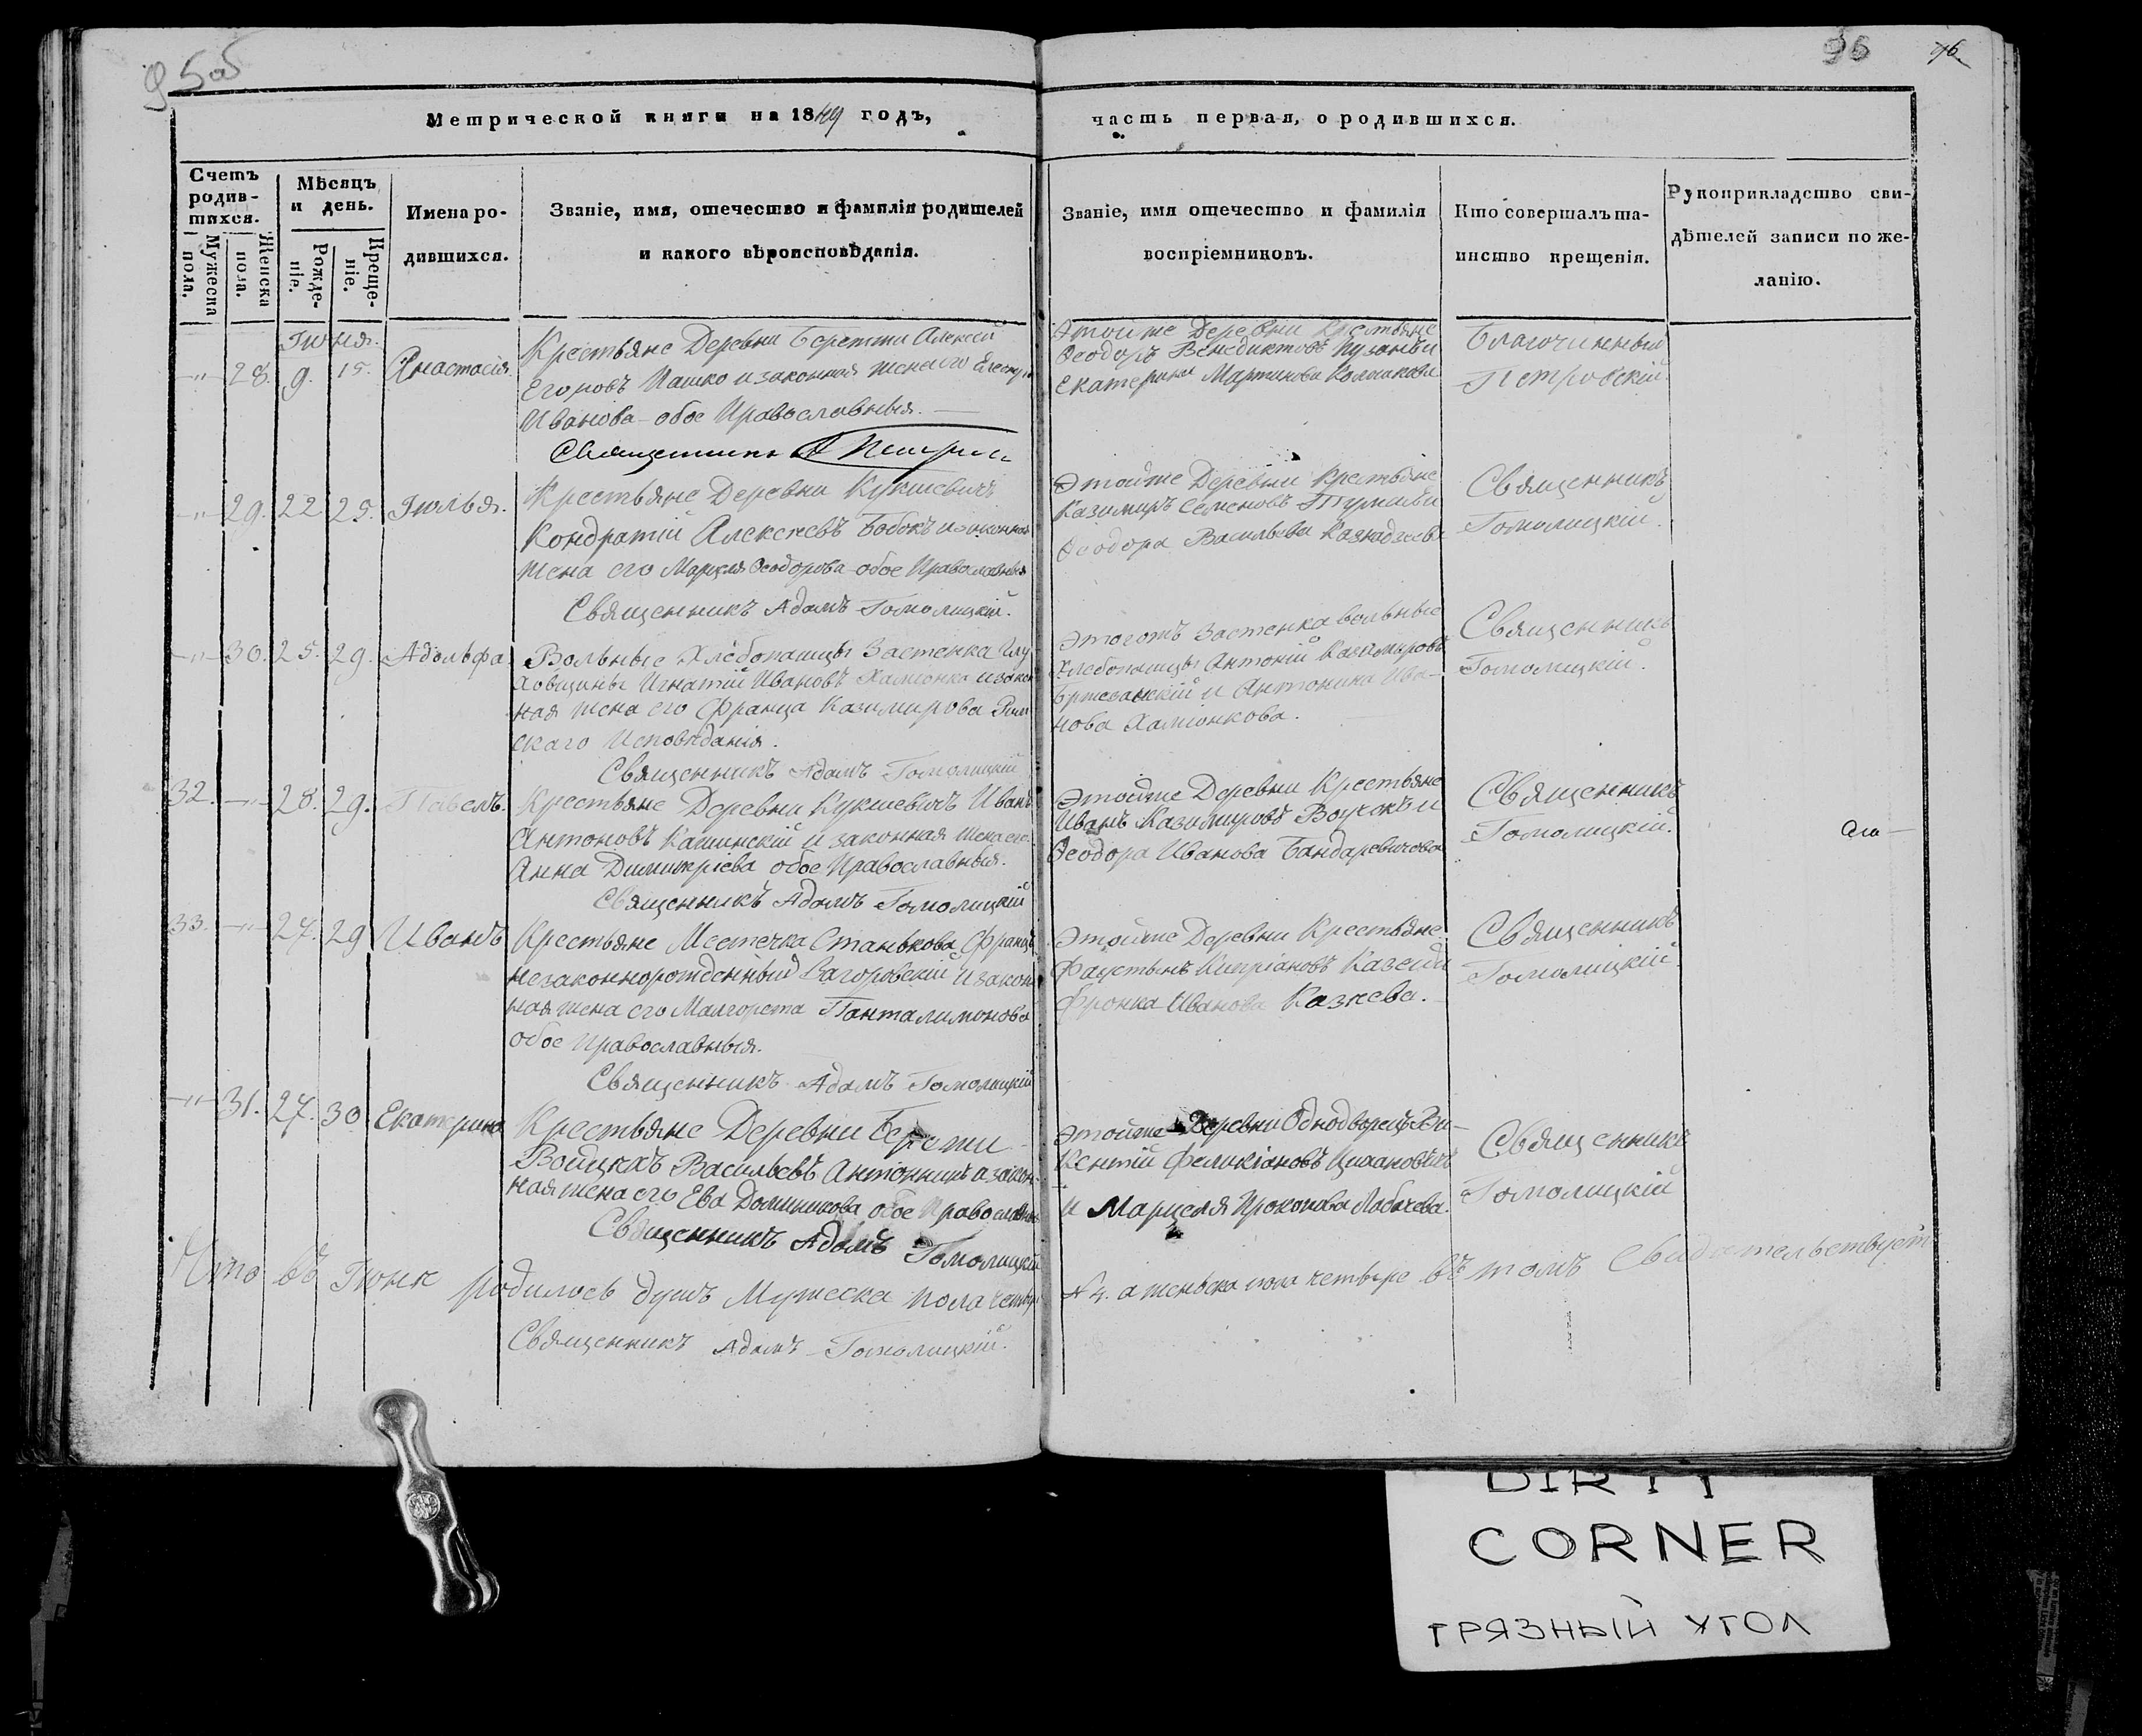 95об
96
96
Метрической книги на 1849 годъ,
часть первая, о родившихся.
Счетъ родив-
шихся.
Мужеска пола.
Женска пола.
Мѣсяцъ и день.
Рожде-
ніе.
Креще-
ніе.
Имена ро-
дившихся.
Званіе, имя, отечество и фамилія родителей
и какого вѣроисповѣданія.
Званіе, имя отечество и фамилія
воспріемниковъ.
Кто совершалъ та-
инство крещенія.
Рукоприкладство сви-
дѣтелей записи по же-
ланію.
Іюня.
28. 9. 15. Анастасія.
Крестьяне Деревни Алексей
Егоровъ Пашко и законная жена его
Иванова обое Православныя.
Священникъ
Этойже Деревни Крестьяне
Ѳеодоръ Венедиктовъ
Екатерина Мартинова
Благочинный
Петровскій
29. 22. 25. Іюлья.
Крестьяне Деревни Кукшевичъ
Кондратій Алексеевъ Бобокъ и законная
жена его Ѳеодорова обое Православныя
Священникъ Адамъ Гомолицкій.
Этойже Деревни Крестьяне
Казимиръ Семеновъ
Ѳеодора Васильева
Священникъ
Гомолицкій.
30. 25. 29. Адольфа
Вольные Хлебопашцы Застенка Глу
ховщины Игнатій Ивановъ Хаміонка и закон
ная жена его Франца Казимирова Рим
скаго Исповѣданія.
Священникъ Адамъ Гомолицкій
Этогожъ Застенка вольные
Хлебопашцы Антоній Казимировъ
и Антонина Ива-
нова Хаміонкова.
Священникъ
Гомолицкій.
32. 28. 29. Павелъ.
Крестьяне Деревни Кукшевичъ Иванъ
Антоновъ Кашинскій и законная жена его
Анна Димитріева обое Православныя.
Священникъ Адамъ Гомолицкій
Этойже Деревни Крестьяне
Иванъ Казимировъ и
Ѳеодора Иванова Бандаревичова
Священникъ
Гомолицкій.
33. 27. 29 Иванъ
Крестьяне Местечка Станькова Францъ
незаконнорожденный Загоровскій и закон
ная жена его Малгорета Панталимонова
обое Православныя.
Священникъ Адамъ Гомолицкій
Этойже Деревни Крестьяне
Фаустынъ Кипріановъ
Фронка Иванова Казеева.
Священникъ
Гомолицкій.
31. 27. 30 Екатерина
Крестьяне Деревни
Войцехъ Васильевъ и закон
ная жена его Ева Доминикова обое Православныя
Священникъ Адамъ Гомолицкій
Этойже Деревни Однодворецъ Ви-
кентій Феликіановъ
и Марцеля Прокопова
Священникъ
Гомолицкій
Что въ Іюне родилось душъ Мужеска пола четыре
№ 4. а женска пола четыре въ томъ Свидетельствуетъ
Священникъ Адамъ Гомолицкій.
DIRTY
CORNER
ГРЯЗНЫЙ УГОЛ